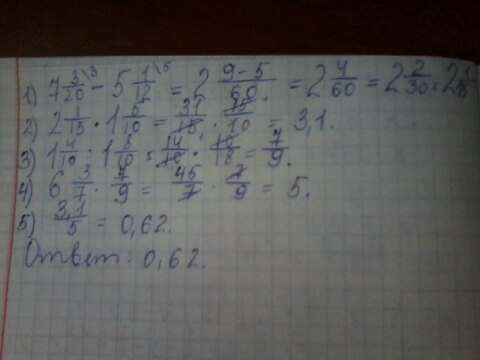 1) 7 3/20 \3 - 5 1/12 \5 = 2 (9-5)/60. = 2 4/60 = 2 2/30 = 2 1/15
2) 2 1/15 · 1 5/10 = 31/15 · 15/10 = 3,1.
3) 1 4/10 : 1 8/10 = 14/10 · 10/18 = 7/9.
4) 6 3/7 · 7/9 = 45/7 · 7/9 = 5.
5) 3,1/5 = 0,62.
Ответ: 0,62.